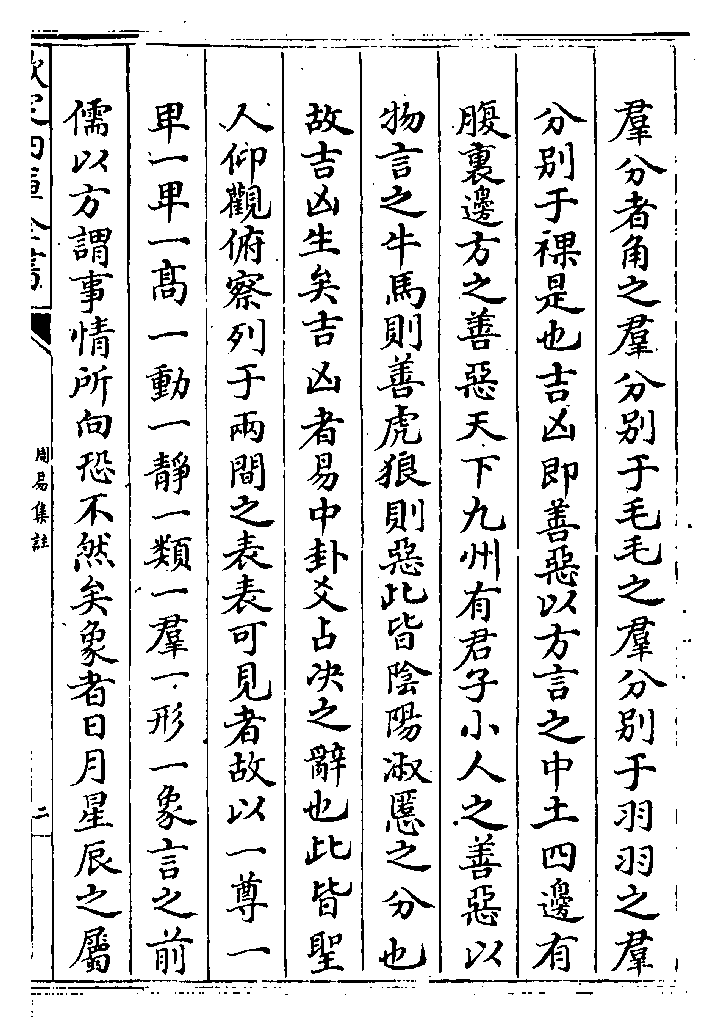 羣分者角之羣分别于毛毛之羣分别于羽羽之羣
分别于裸是也吉凶即善惡以方言之中土四邊有
腹裏邊方之善惡天下九州有君子小人之善惡以
物言之牛馬則善虎狼則惡此皆陰陽淑慝之分也
故吉凶生矣吉凶者易中卦爻占决之辭也此皆聖
人仰觀俯察列于兩間之表表可見者故以一尊一
卑一卑一髙一動一静一類一羣一形一象言之前
儒以方謂事情所向恐不然矣象者日月星辰之屬
欽定四庫全書
周易集註
二